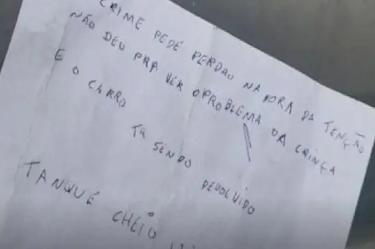 CRIME PEDE PERDAO NA HORA DA TENÇÃO
NÃO DEU PRA VER O PROBLEMA DA CRINÇA
E O CARRO TA SENDO DEVOLVIDO
TANQUE CHEIO